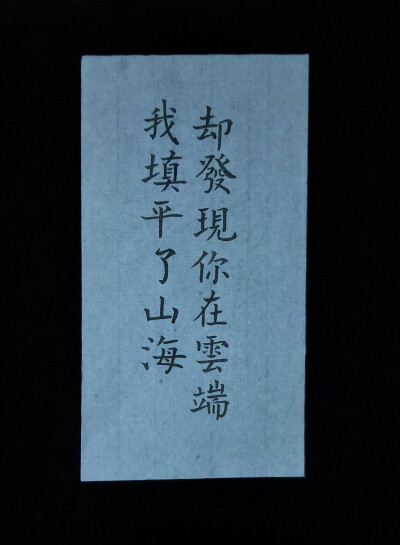 我填平了山海
却發現你在雲端